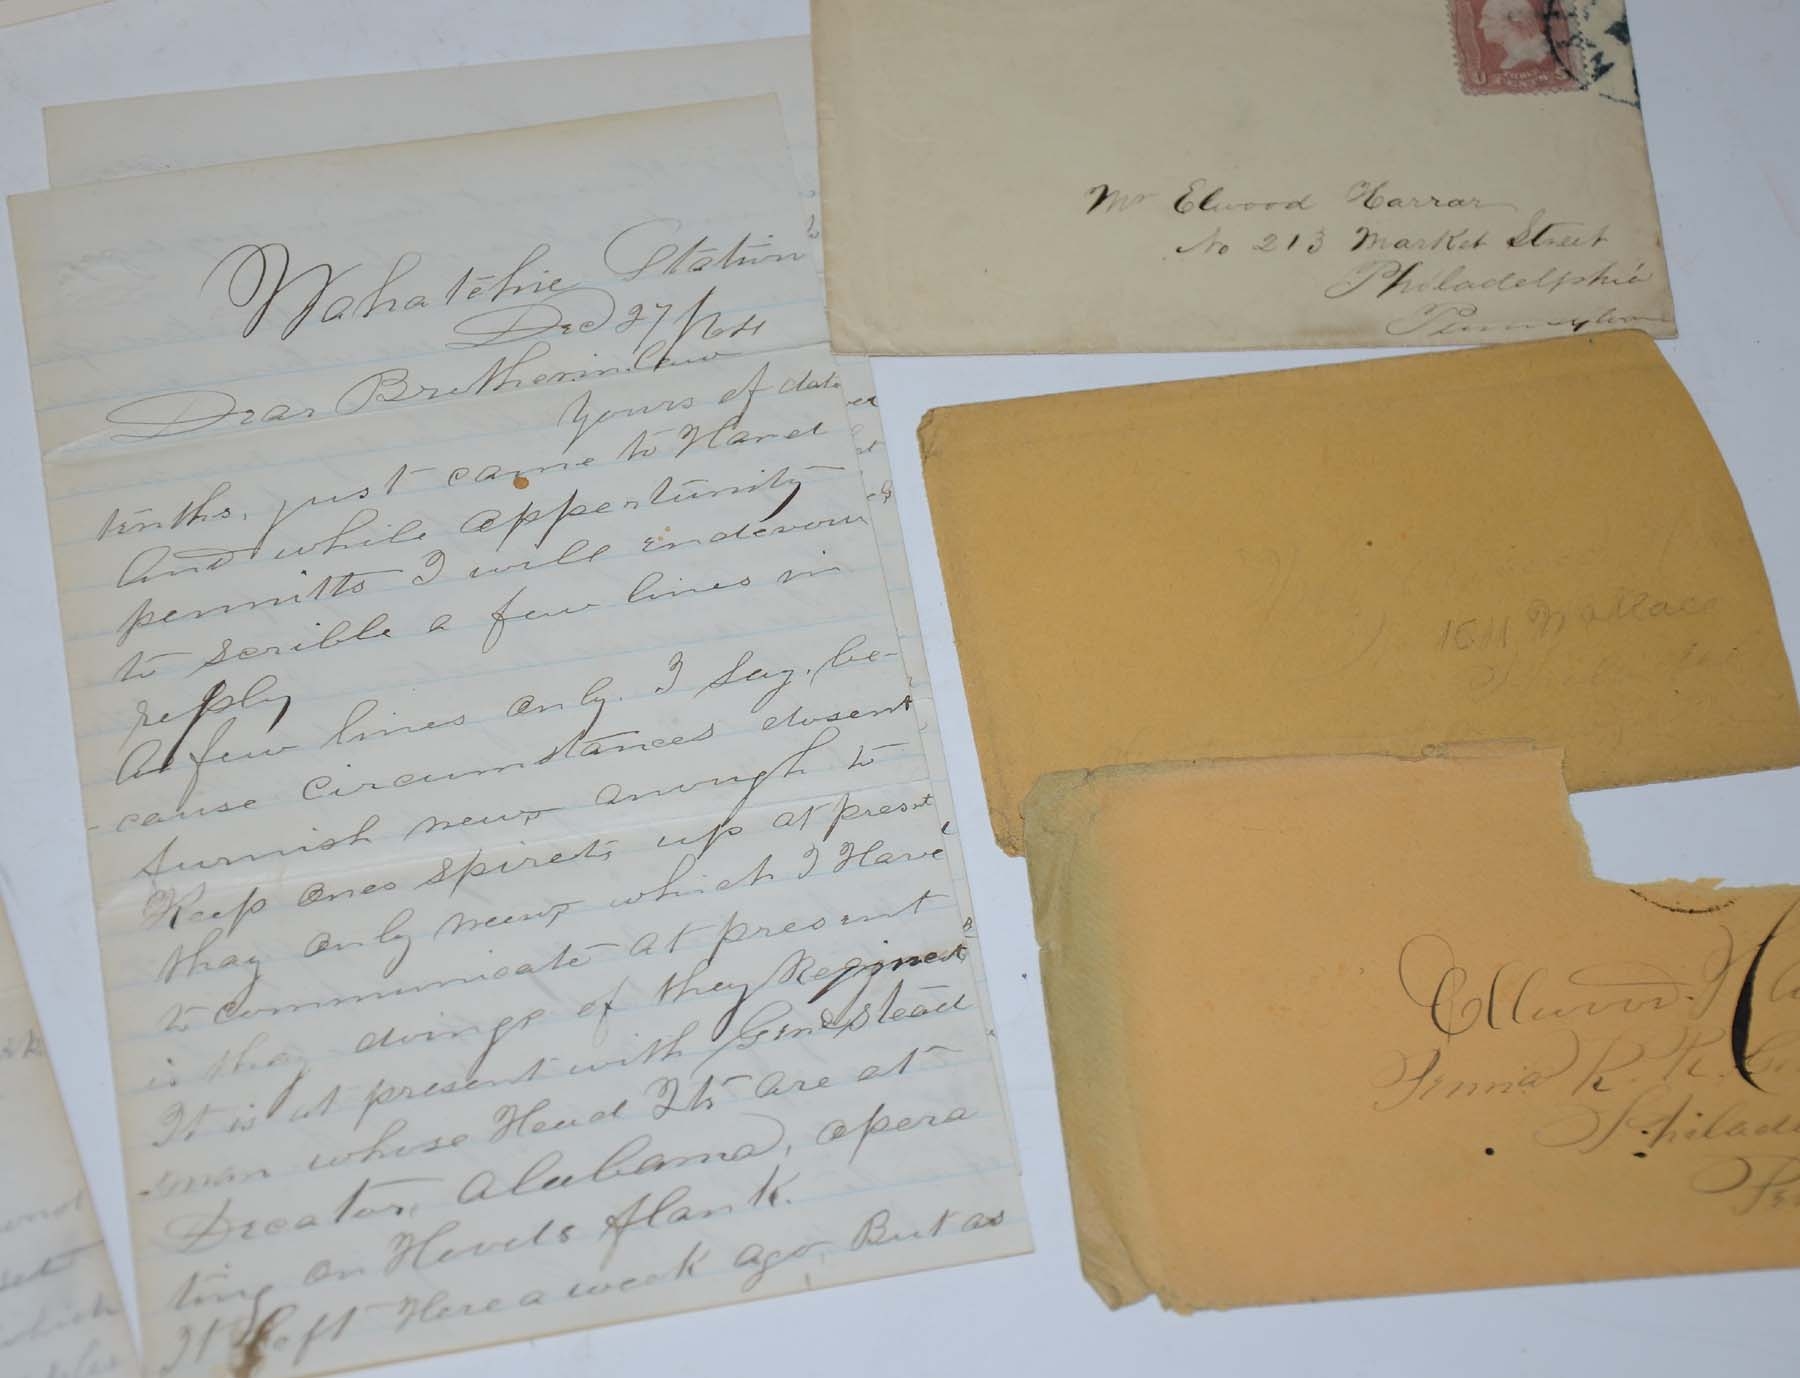 Wahatchie Station
Dec 27/64
Dear Brotherinlaw
Yours of date
tenths, just came to Hand
And while appertunity
permitts I will endevour
to scrible a few lines in
reply
A few lines only. I say, be-
cause circumstances dosent
furnish news anough to
Keep ones spirets up at present
thay only news which I Have
to communicate at present
is thay doings of they Regiment
It is at present with Genr Stead
-man whose Head Qts are at
Decator, Alabama, opera
ting on Hoods flank.
It left Here a week ago, But as
Mr Elwood Harrar
No 213 Market Street
Philadelphia
Pennsylvan
U THREE CENTS S
1511 Wallace
Ellwood H
Penna R. R.
Philad
Pen
which